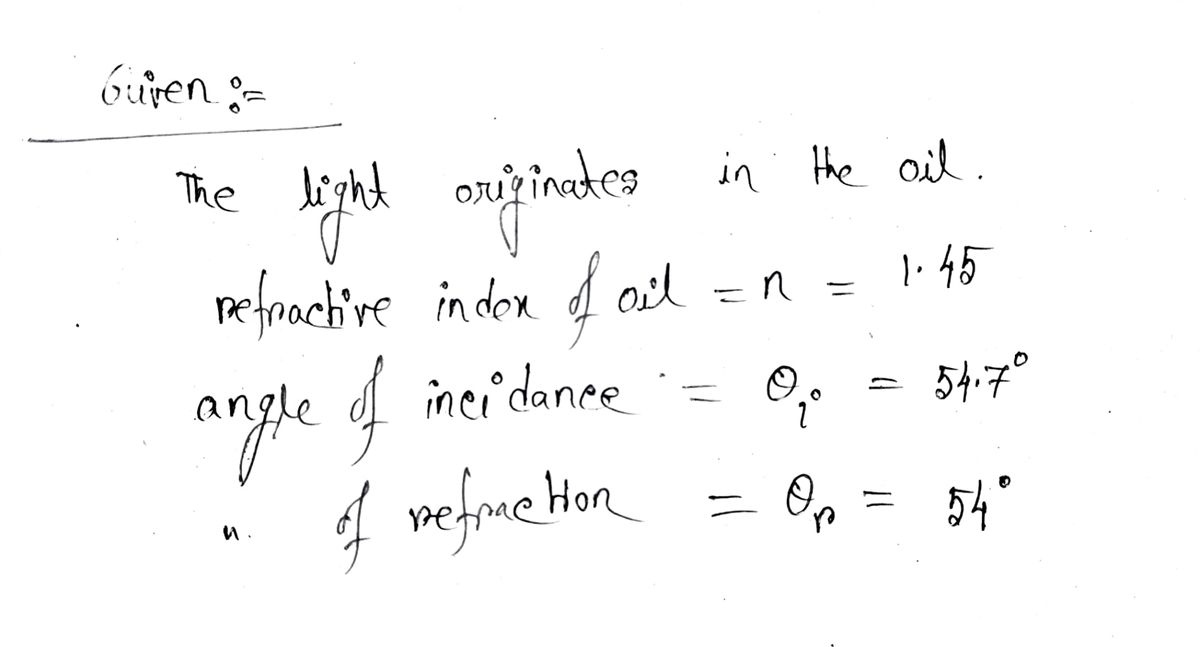 Given :=
The light originates in the oil.
refractive index of oil = n = 1.45
angle of incidance = θi = 54.7°
". of refraction = θr = 54°